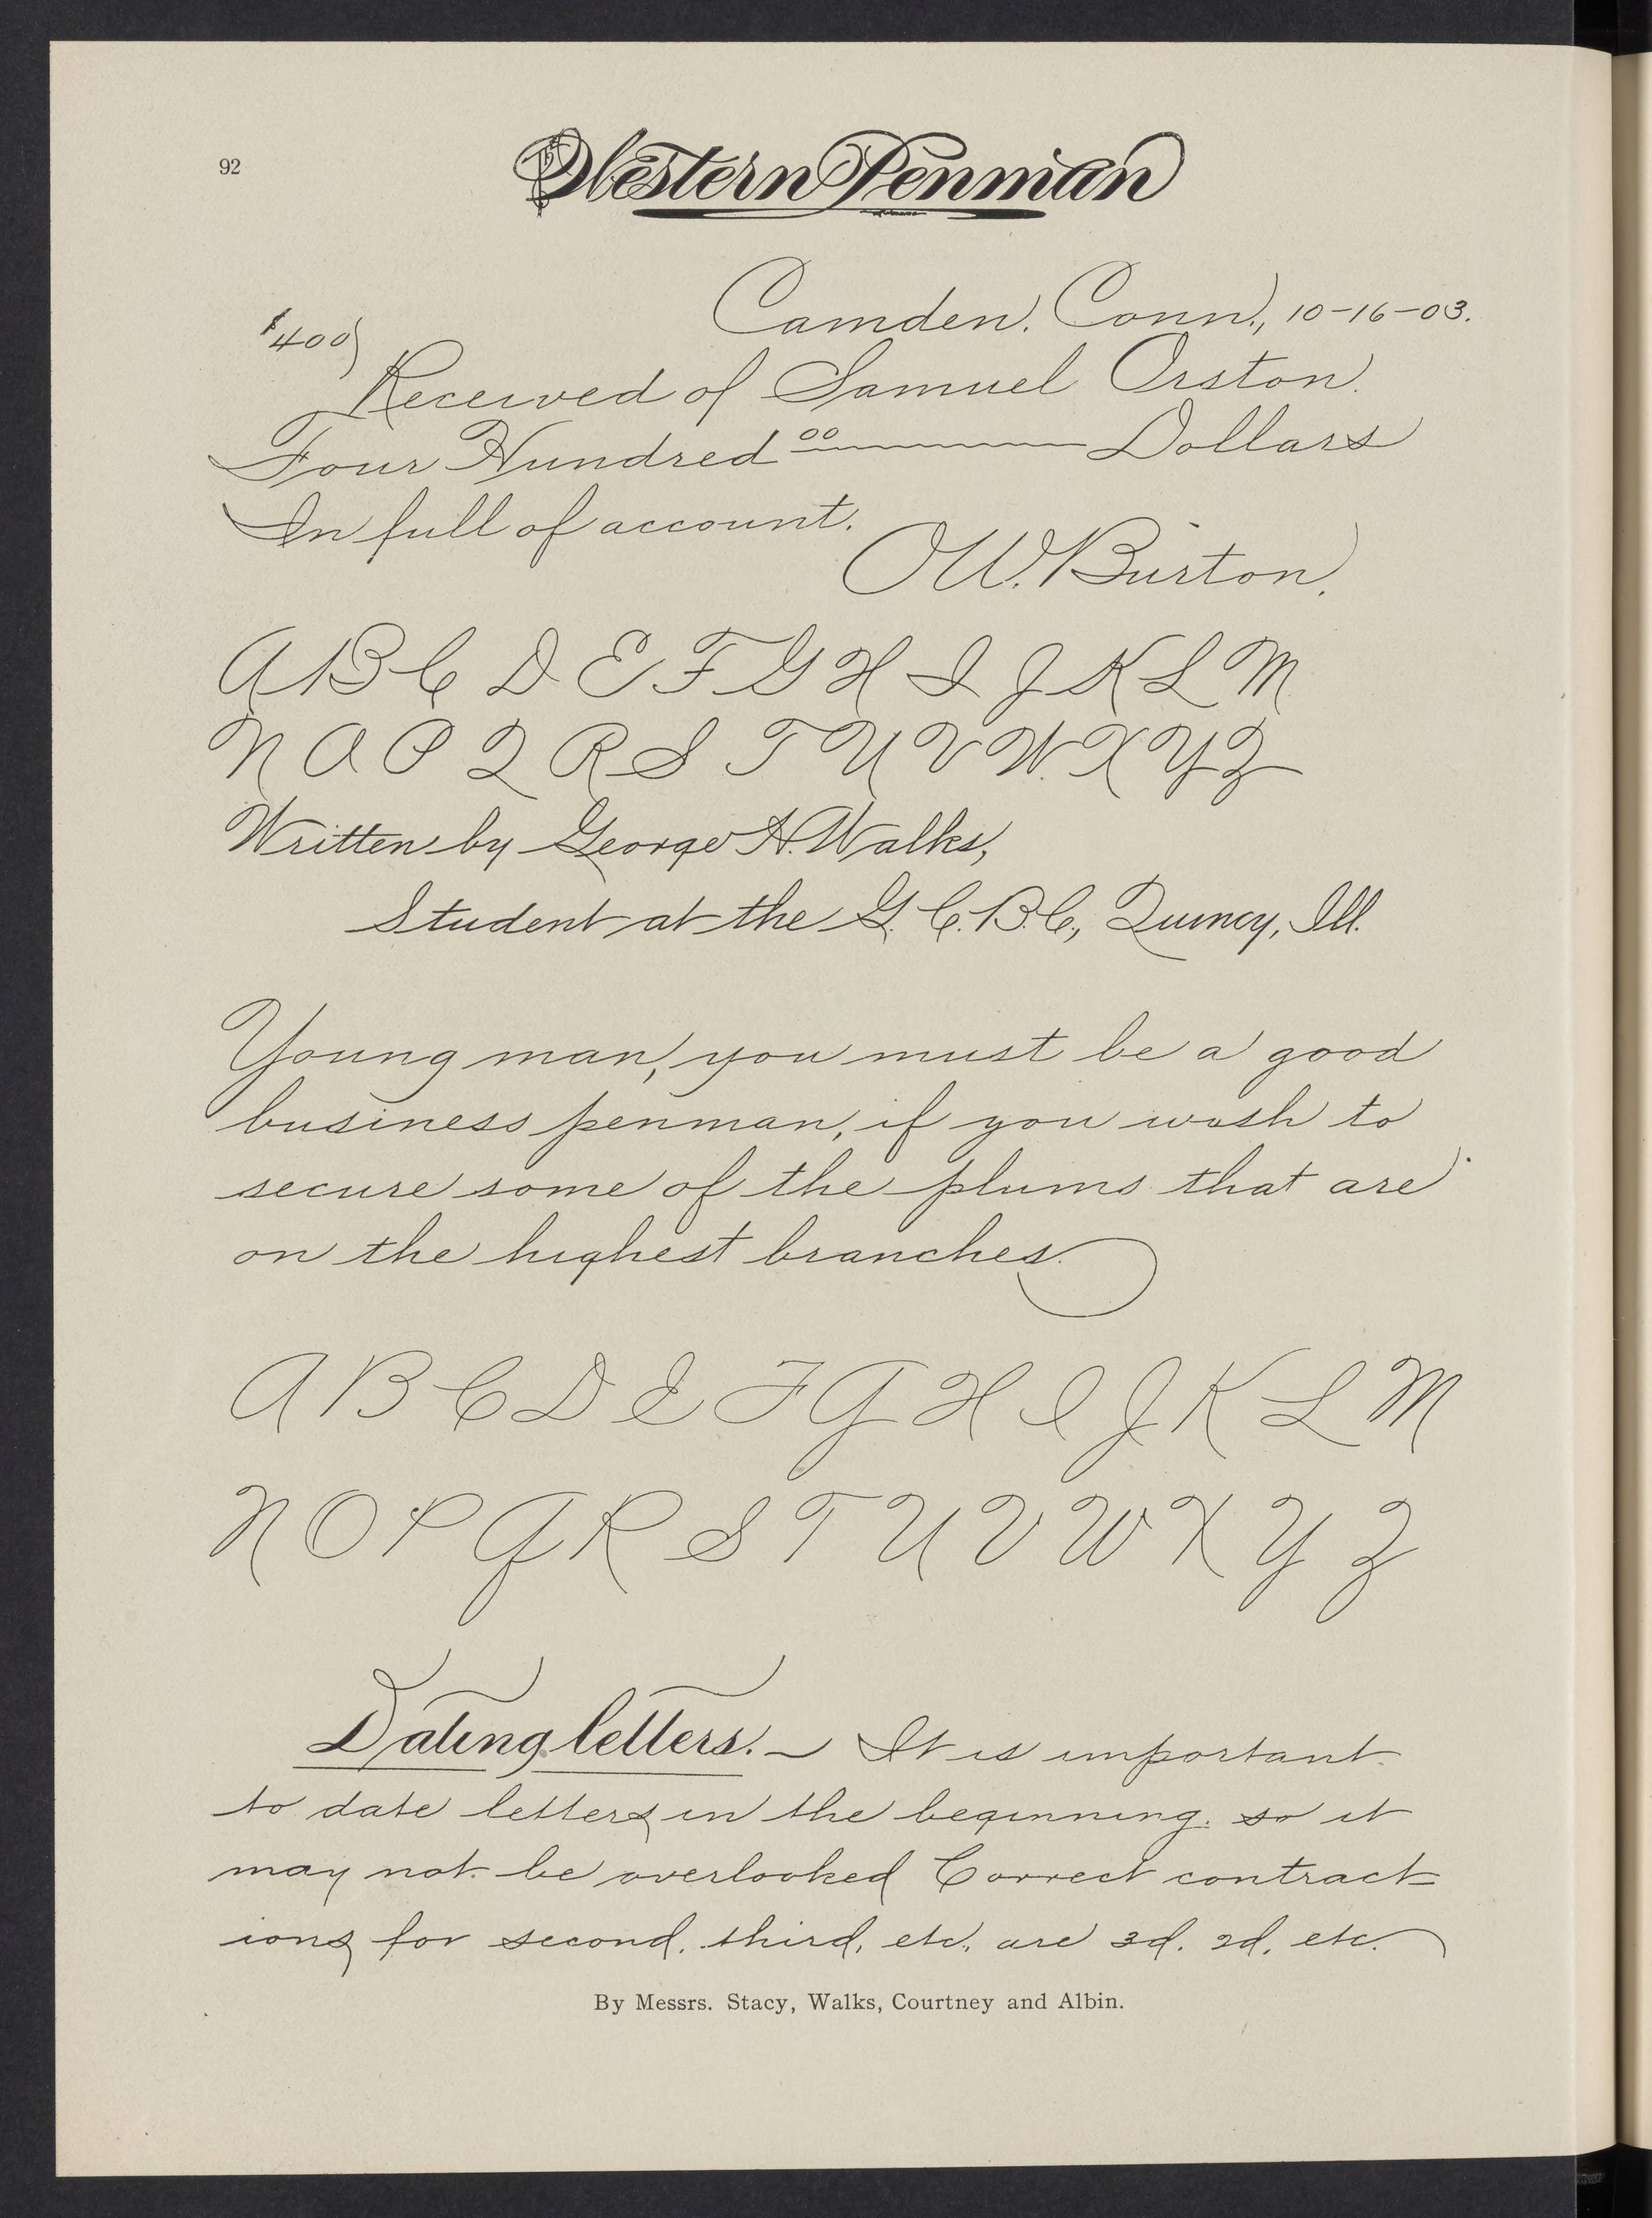 92
Western Penman
Camden, Conn., 10-16-03.
$400
Received of Samuel Orston
Four Hundred 00 Dollars
In full of account.
O.W. Burton.
A B C D E F G H I J K L M
N O P Q R S T U V W X Y Z
Written by George H. Walks,
Student at the G. C. B. C., Quincy, Ill.
Young man, you must be a good
business penman, if you wish to
secure some of the plums that are
on the highest branches.
A B C D E F G H I J K L M
N O P Q R S T U V W X Y Z
Dating letters. – It is important
to date letters in the beginning. so it
may not be overlooked Correct contract=
ions for second, third, etc, are 3d, 2d, etc.
By Messrs. Stacy, Walks, Courtney and Albin.